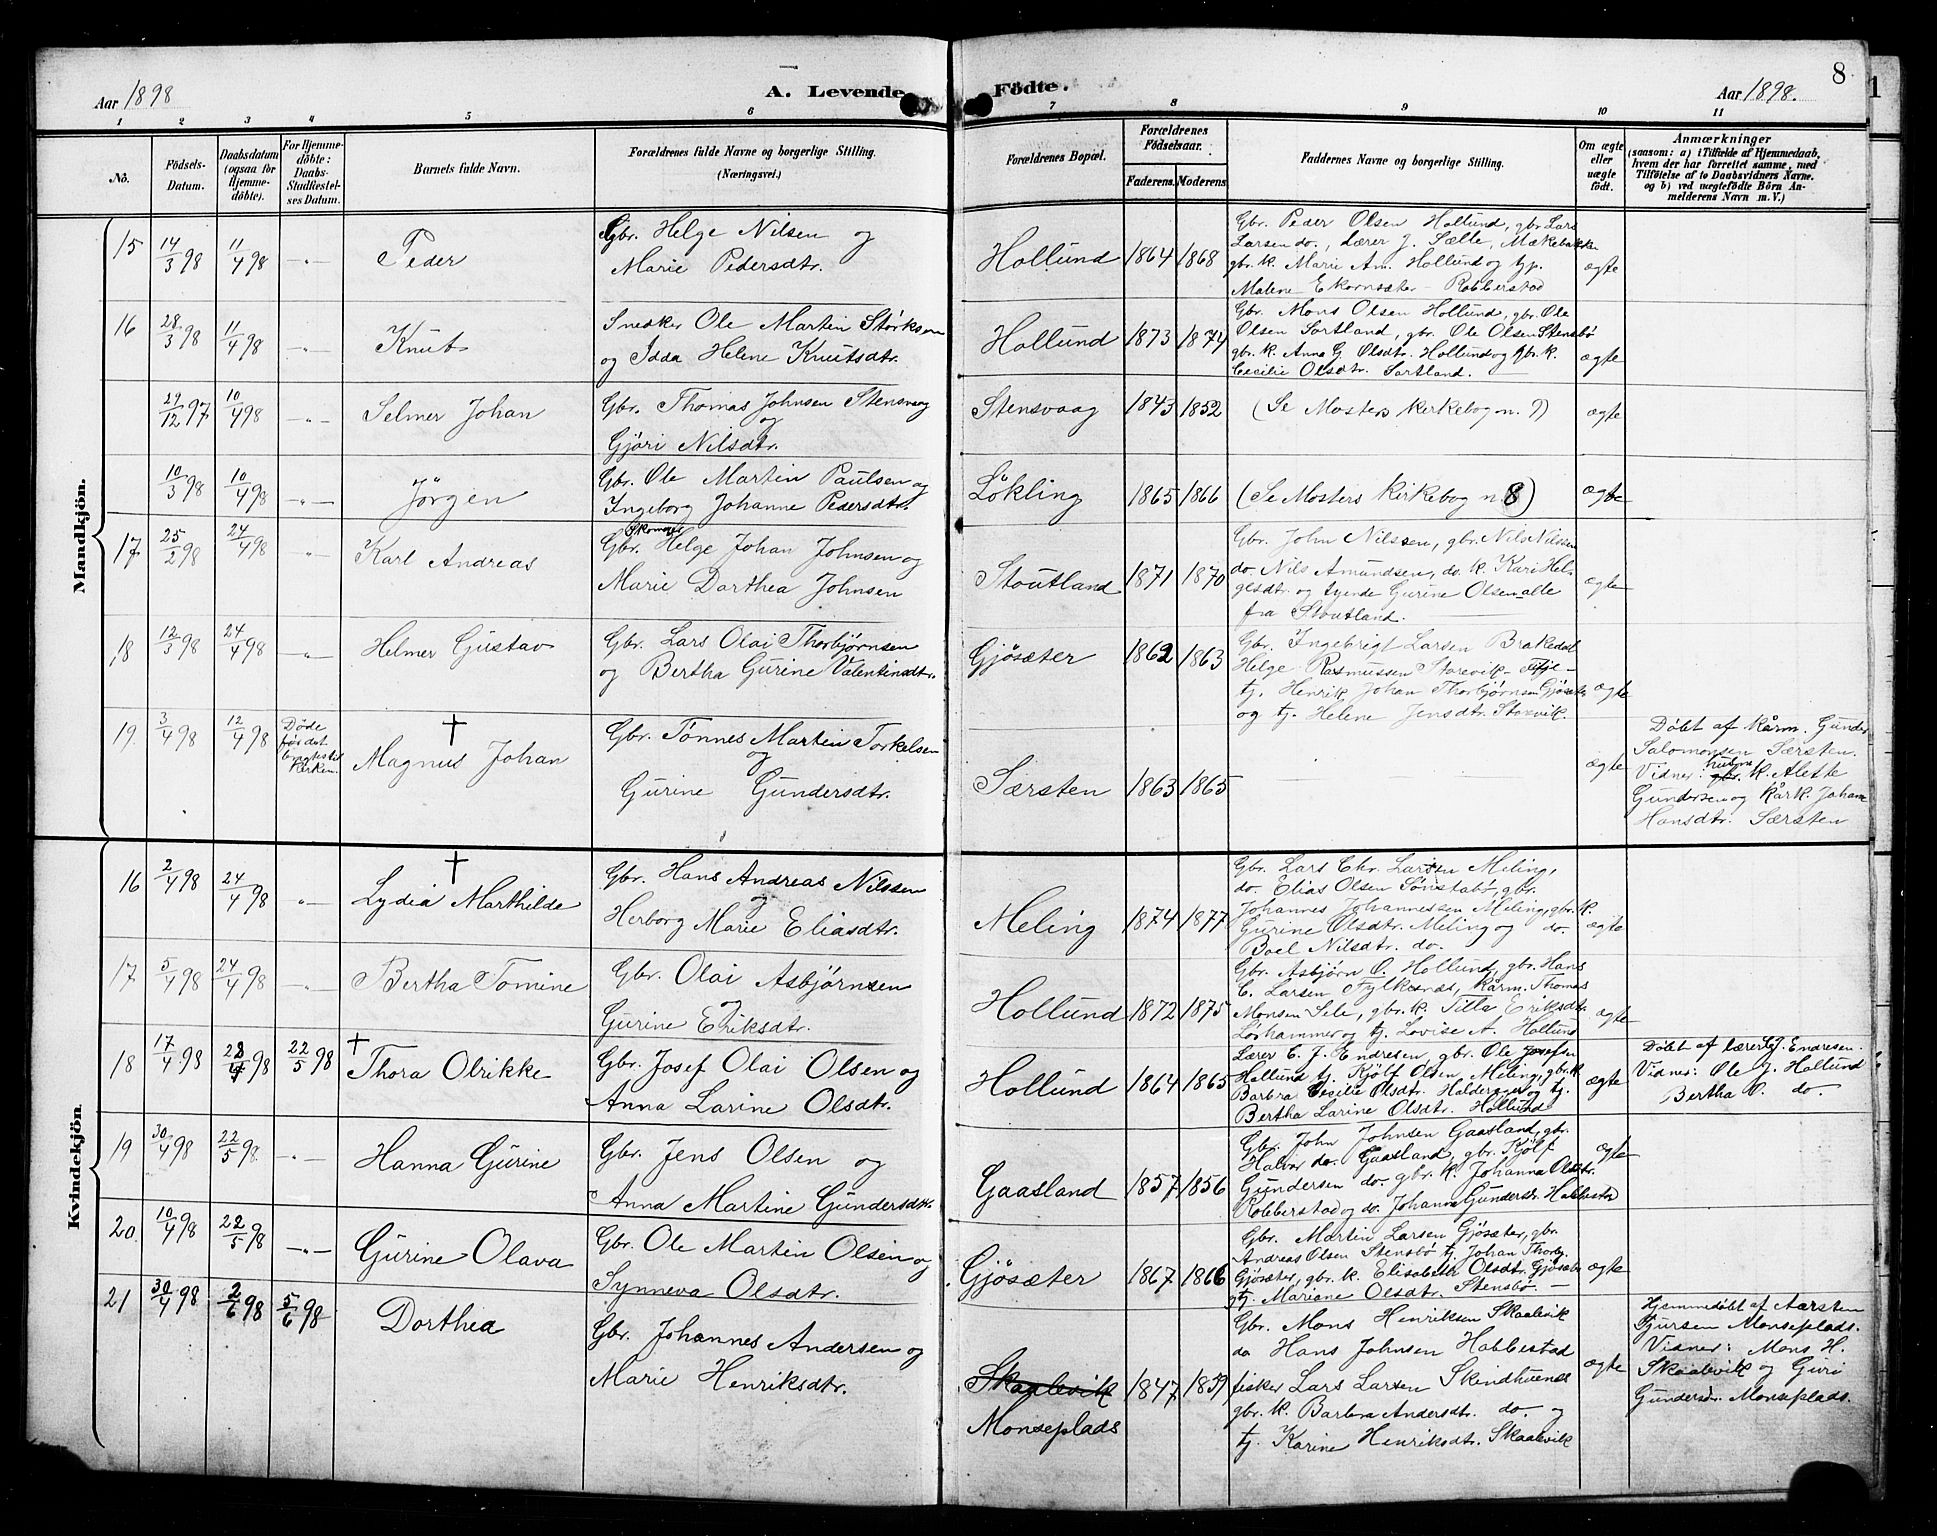 8
Aar 1898
A. Levende
Födte.
Aar 1898.
1 2 3 4 5 6 7 8 9 10 11
No.
Födsels-
Datum.
Daabsdatum
(ogsaa for
Hjemme-
döbte).
For Hjemme-
döbte:
Daabs-
Stadfæstel-
ses Datum.
Barnets fulde Navn.
Forældrenes fulde Navne og borgerlige Stilling.
(Næringsvei.)
Forældrenes Bopæl.
Forældrenes
Födselsaar.
Faderens.
Moderens.
Faddernes Navne og borgerlige Stilling.
Om ægte
eller
uægte
født.
Anmærkninger
(saasom: a) i Tilfælde af Hjemmedaab,
hvem der har forrettet samme, med
Tilföielse af to Daabsvidners Navne.
og b) ved uægtefödte Börn An-
melderens Navn m. V.)
Mandkjön.
15 14/3 98 11/4 98 -"- Peder
Gbr. Helge Nilsen og
Marie Pedersdtr.
Hollund 1864 1868
Gbr. Peder Olsen Hollund, gbr. Lars
Larsen do., Lærer J. Sælle, Mækebakke
gbr. k. Marie Am. Hollund og typ.
Malene Ekornsæter - Robberstad
ægte
16 28/3 98 11/4 98 -"- Knut
Snedker Ole Martin Størksen
og Idda Helene Knutsdtr.
Hollund 1873 1874
Gbr. Mons Olsen Hollund, gbr. Ole
Olsen Sortland, gbr. Ole Olsen Stensbö
gbr. k. Anna G. Olsdtr. Hollund og gbr. k.
Cecilie Olsdtr. Sortland.
ægte
29/12 97 10/4 98 -"- Selmer Johan
Gbr. Thomas Johnsen Stensvaag
og
Gjöri Nilsdtr.
Stensvaag 1843 1852 (Se Mosters Kirkebog n. 7) ægte
10/3 98 10/4 98 -"- Jörgen
Gbr. Ole Martin Paulsen og
Ingeborg Johanne Pedersdtr.
Lökling 1865 1866 (Se Mosters Kirkebog n. 8) ægte
17 25/2 98 24/4 98 -"- Karl Andreas
Skomager
Gbr. Helge Johan Johnsen og
Marie Dorthea Johnsen
Stoutland 1871 1870
Gbr. John Nilssen, gbr. Nils Nilssen
do. Nils Amundsen, do. k. Kari Hel-
gesdtr. og tyende Gurine Olsen alle
fra Stoutland.
ægte
18 12/3 98 24/4 98 -"- Helmer Gustav
Gbr. Lars Olai Thorbjörnsen
og Bertha Gurine Valentinsdtr.
Gjösæter 1862 1863
Gbr. Ingebrigt Larsen Brakedal
Helge Rasmussen Storevik -
tj. Henrik Johan Thorbjörnsen Gjösæter
og tj. Helene Jensdtr. Storvik.
ægte
19. 3/4 98 12/4 98
Døde
før det
bragtes til
Kirken.
† Magnus Johan
Gbr. Tönnes Martin Torkelsen
og
Gurine Gundersdtr.
Særsten 1863 1865 ægte
Döbt af Kårm. Gunder
Salomonsen Særsten.
Vidner: k. Alette
Gundersen og Kårk. Johanne
Hansdtr. Særsten
Kvindekjön.
16 2/4 98 24/4 98 -"- † Lydia Marthilde
Gbr. Hans Andreas Nilssen
og
Herborg Marie Eliasdtr.
Meling 1874 1877
Gbr. Lars Chr. Larsen Meling,
do. Elias Olsen Sönstabö, gbr.
Johannes Johannessen Meling, gbr. k.
Gurine Olsdtr. Meling og do.
Boel Nilsdtr. do.
ægte
17 5/4 98 24/4 98 -"- Bertha Tomine
Gbr. Olai Asbjörnsen
og
Gurine Eriksdtr.
Hollund 1872 1875
Gbr. Asbjörn O. Hollund, gbr. Hans
C. Larsen Fylkesnæs, Kårm. Thomas
Monsen Sele, gbr. k. Tilla Eriksdtr.
Lörhammer og tj. Lovise A. Hollund
ægte
18 17/4 98 98 22/5 98 † Thora Olrikke
Gbr. Josef Olai Olsen og
Anna Larine Olsdtr.
Hollund 1864 1865
Lærer E. J. Endresen, gbr. Ole Josefsen
Hollund tj. Kjölf Olsen, Meling, gbr. k.
Barbra Cecilie Olsdtr. Haldergaar og tj.
Bertha Larine Olsdtr. Hollund
ægte
Döbt af Lærer E. J. Endresen.
Vidner: Ole J. Hollund
Bertha O. do.
19 30/4 98 22/5 98. -"- Hanna Gurine
Gbr. Jens Olsen og
Anna Martine Gundersdtr.
Gaasland 1857 1856
Gbr. John Johnsen Gaasland, gbr.
Halvor do. Gaasland, gbr. Kjölf
Gundersen do. gbr. k. Johanna Olsdtr.
Robberstad og do. Johanna Gunderstr. Habbestad
ægte
20. 10/4 98 22/5 98 -"- Gurine Olava
Gbr. Ole Martin Olsen og
Synneva Olsdtr.
Gjösæter 1867 1866
Gbr. Martin Larsen Gjösæter, gbr.
Andreas Olsen Stensbö tj. Johan Thorbj.
Gjösæter, gbr. k. Elisabeth Olsdtr. Gjösæter
tj. Mariane Olsdtr. Stensbö -
ægte
21 30/4 98 2/6 98 5/6 98 Dorthea
Gbr. Johannes Andersen og
Marie Henriksdtr.
Skaalevik
Monseplads
1847 1859
Gbr. Mons Henriksen Skaalevik
do Hans Johnsen Habbestad
fisker Lars Larsen Skindhuenæs
gbr. k. Barbra Andersdtr. do. og
tj. Karine Henriksdtr. Skaalevik
ægte
Hjemmedöbt af Aarsten
Sjursen Monseplads.
Vidner: Mons H.
Skaalevik og Guri
Gundersdtr. Monseplads.